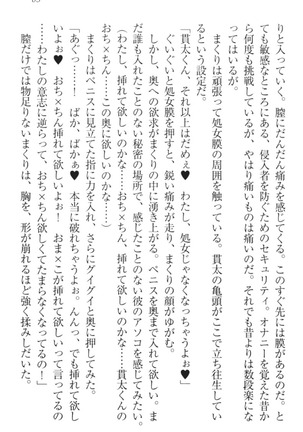 りと入っていく。膣にだんだん感じるものがあるのだ。と
ても敏感なところにある、侵入者を防ぐためのセキュリティ。オナニーを覚えた昔か
ら何度も挑戦しているが、やはり痛いものは痛いのだ。それでも昔よりは数段楽にな
ってはいるが。
まくりは頑張って処女膜の周囲を触っている。貫太の亀頭がここで立ち往生してい
るという設定だ。
「貫太くん、それ以上はだめぇ♥　わたし、処女じゃなくなっちゃうよぉ♥」
ぐいぐいと処女膜を押すと、鋭い痛みが走り、まくりの顔がゆがむ。
しかし、奥への欲求がまくりの中に湧き上がる。ペニスを奥まで入れて欲しい。ま
だ誰も入れたことのない秘密の場所で、感じたことのない彼のアソコを感じてみたい。
（わたし、挿れて欲しいのかな……おち×ちん、挿れて欲しいのかな……貫太くんの
おち×ちん……この奥に欲しいのかな……）
まくりはペニスに見立てた指に力を入れ、さらにグイグイと奥に押してみた。
「あぐっ……！　ばか、ばかぁ♥　本当に破れちゃうよぉ。んんっ、でも挿れて欲し
いよぉ♥　おち×ちん挿れて欲しいよぉ！　おま×こが挿れて欲しいって言ってるの
……わたしの意志に逆らって、おち×ちん欲しくてたまらなくなってるの！」
膣だけでは物足りないまくりは、胸を、形が崩れるほど強く揉みしだいた。